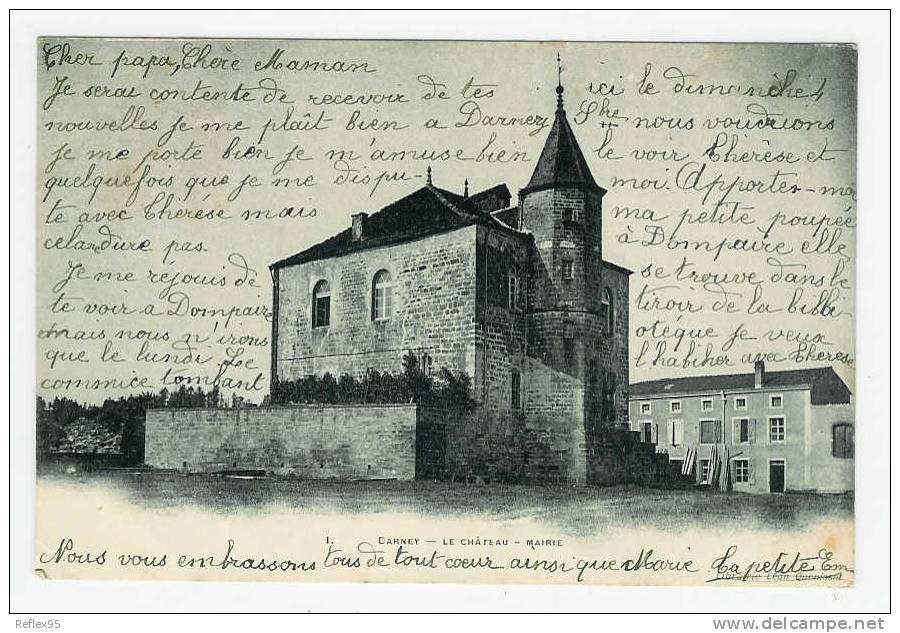 Cher papa, Chère Maman
Je serai contente de recevoir de tes
nouvelles Je me plaît bien a Darney
Je me porte bien Je m'amuse bien
quelquefois que je me dispu-
te avec Thérèse mais
cela dure pas.
Je me réjouis de
te voir a Dompaire
mais nous n'irons
que le lundi Le
commice tombant
ici le dimanche 4
Sbre nous voudrions
le voir Thérèse et
moi. Apporter-moi
ma petite poupée
à Dompaire elle
se trouve dans le
tiroir de la bibli
otéque je veux
l'habiher avec Thérèse
1. DARNEY — LE CHÂTEAU - MAIRIE
Nous vous embrassons tous de tout coeur ainsi que Marie La petite Em
Librairie Léon Quenissot
Reflex95
http://www.delcampe.net